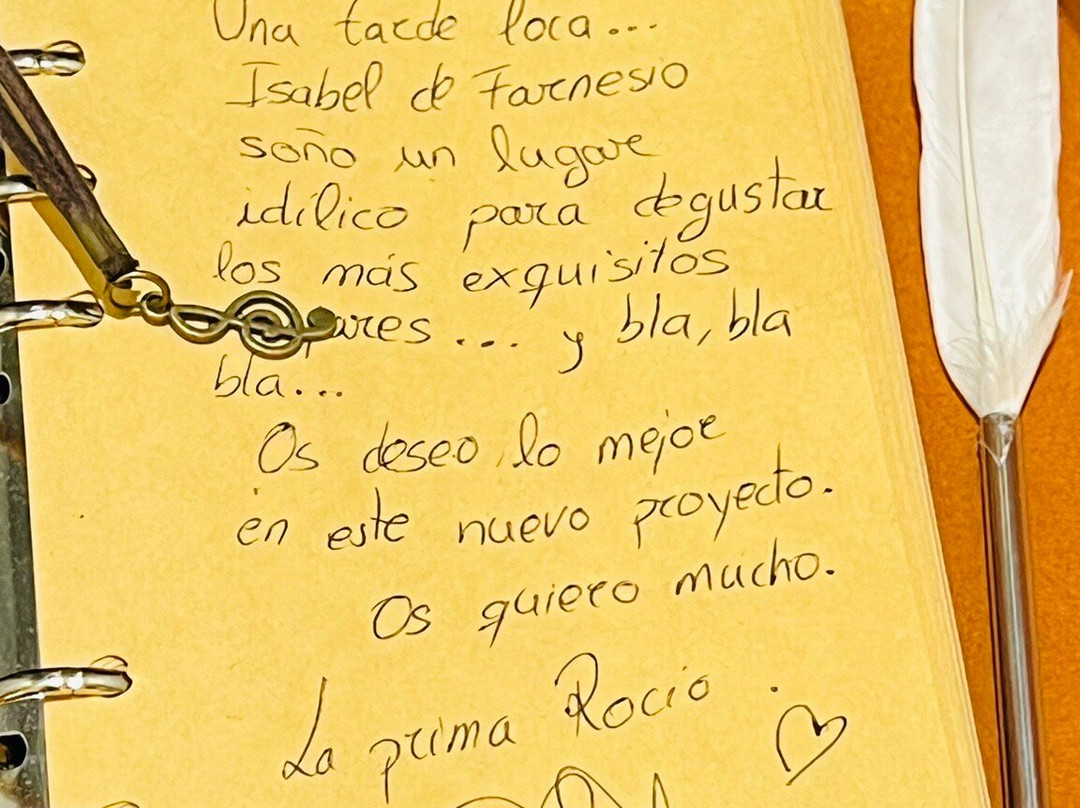 Una tarde loca...
Isabel de Farnesio
soño un lugar
idílico para degustar
los más exquisitos
... y bla, bla
bla...
Os deseo lo mejor
en este nuevo proyecto.
Os quiero mucho.
La prima Rocío.